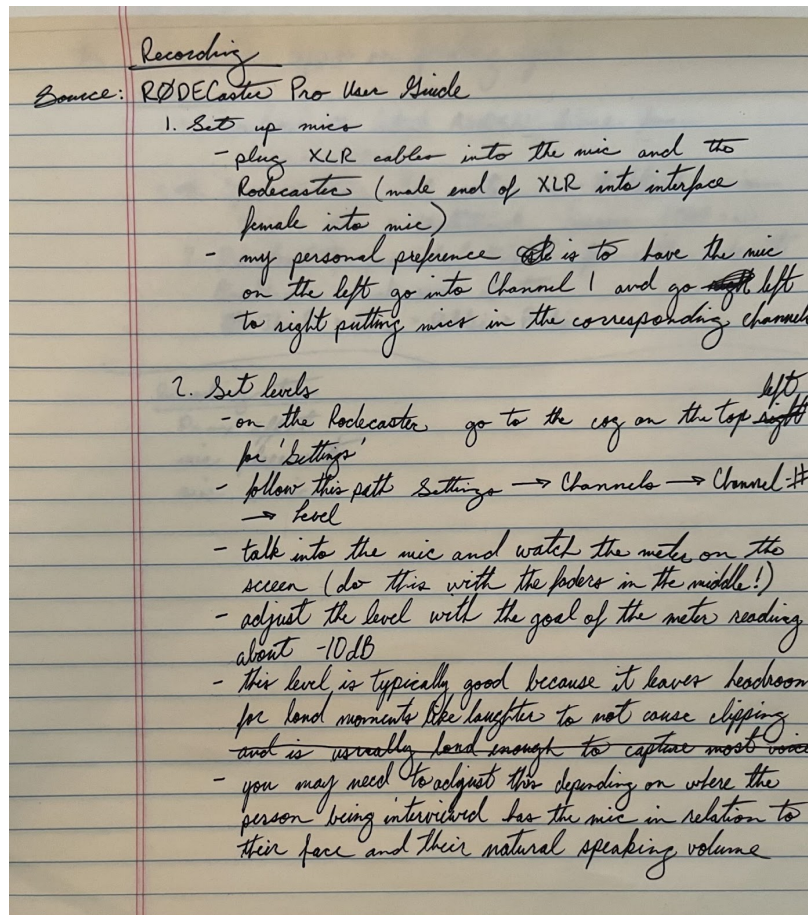 Recording
Source: RØDECaster Pro User Guide
1. Set up mics
- plug XLR cables into the mic and the
Rodecaster (male end of XLR into interface
female into mic)
- my personal preference is to have the mic
on the left go into Channel 1 and go right left
to right putting mics in the corresponding channels
2. Set levels
left
- on the Rodecaster go to the cog on the top right
for 'Settings'
- follow this path Settings → Channels → Channel-#
→ Level
- talk into the mic and watch the meter on the
screen (do this with the faders in the middle!)
- adjust the level with the goal of the meter reading
about -10dB
- this level is typically good because it leaves headroom
for loud moments like laughter to not cause clipping
and is usually loud enough to capture most voice
- you may need to adjust this depending on where the
person being interviewed has the mic in relation to
their face and their natural speaking volume